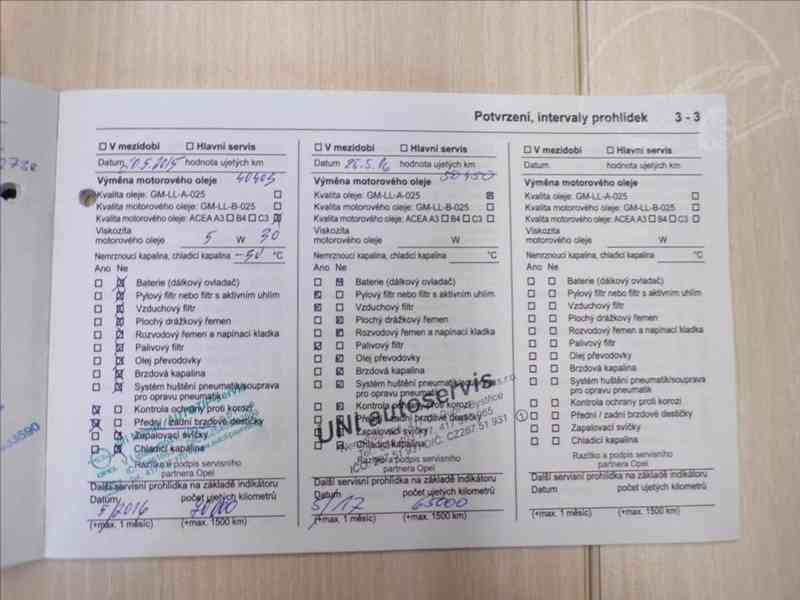 Potvrzení, intervaly prohlídek 3 - 3
V mezidobí Hlavní servis
Datum 20.5.2015 hodnota ujetých km
Výměna motorového oleje 40403
Kvalita oleje: GM-LL-A-025
Kvalita motorového oleje: GM-LL-B-025
Kvalita motorového oleje: ACEA A3 B4 C3
Viskozita
motorového oleje 5 W 30
Nemrznoucí kapalina, chladicí kapalina -30 °C
Ano Ne
Baterie (dálkový ovladač)
Pylový filtr nebo filtr s aktivním uhlím
Vzduchový filtr
Plochý drážkový řemen
Rozvodový řemen a napínací kladka
Palivový filtr
Olej převodovky
Brzdová kapalina
Systém huštění pneumatik/souprava
pro opravu pneumatik
Kontrola ochrany proti korozi
Přední / zadní brzdové destičky
Zapalovací svíčky
Chladicí kapalina
Razítko a podpis servisního
partnera Opel
Další servisní prohlídka na základě indikátoru
Datum počet ujetých kilometrů
5/2016 70000
(+max. 1 měsíc) (+max. 1500 km)
V mezidobí Hlavní servis
Datum 26.5.16 hodnota ujetých km
Výměna motorového oleje 50450
Kvalita oleje: GM-LL-A-025
Kvalita motorového oleje: GM-LL-B-025
Kvalita motorového oleje: ACEA A3 B4 C3
Viskozita
motorového oleje W
Nemrznoucí kapalina, chladicí kapalina °C
Ano Ne
Baterie (dálkový ovladač)
Pylový filtr nebo filtr s aktivním uhlím
Vzduchový filtr
Plochý drážkový řemen
Rozvodový řemen a napínací kladka
Palivový filtr
Olej převodovky
Brzdová kapalina
Systém huštění pneumatik/souprava
pro opravu pneumatik
Kontrola ochrany proti korozi
Přední / zadní brzdové destičky
Zapalovací svíčky
Chladicí kapalina
UNI autoservis
Razítko a podpis servisního
partnera Opel
Další servisní prohlídka na základě indikátoru
Datum počet ujetých kilometrů
5/17 65000
(+max. 1 měsíc) (+max. 1500 km)
V mezidobí Hlavní servis
Datum hodnota ujetých km
Výměna motorového oleje
Kvalita oleje: GM-LL-A-025
Kvalita motorového oleje: GM-LL-B-025
Kvalita motorového oleje: ACEA A3 B4 C3
Viskozita
motorového oleje W
Nemrznoucí kapalina, chladicí kapalina °C
Ano Ne
Baterie (dálkový ovladač)
Pylový filtr nebo filtr s aktivním uhlím
Vzduchový filtr
Plochý drážkový řemen
Rozvodový řemen a napínací kladka
Palivový filtr
Olej převodovky
Brzdová kapalina
Systém huštění pneumatik/souprava
pro opravu pneumatik
Kontrola ochrany proti korozi
① Přední / zadní brzdové destičky
Zapalovací svíčky
Chladicí kapalina
Razítko a podpis servisního
partnera Opel
Další servisní prohlídka na základě indikátoru
Datum počet ujetých kilometrů
(+max. 1 měsíc) (+max. 1500 km)